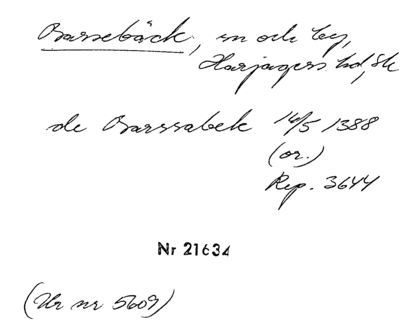 Barsebäck, sn och by,
Harjagers hd, Sk
de Barssabek 16/5 1388
(or.)
Rep. 3644
Nr 21634
(Ur nr 5609)